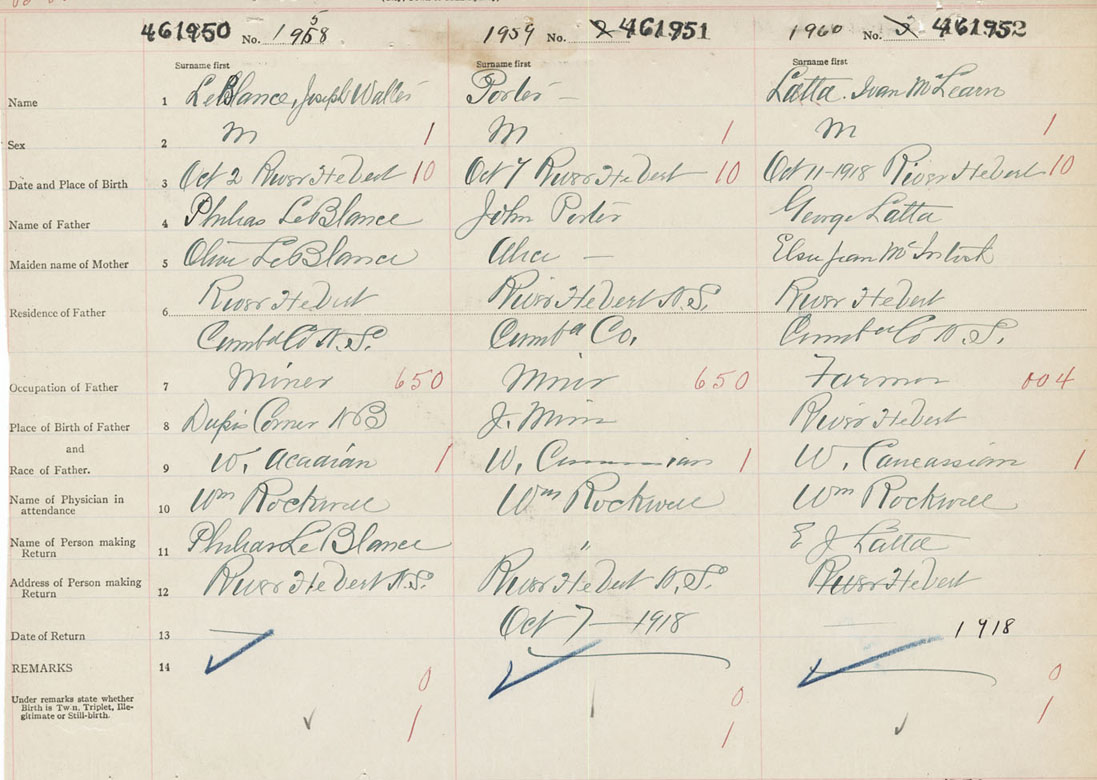 461950 No. 1958 1959 No. 2 461951 1960 No. 3 461952
Surname first Surname first Surname first
Name 1 LeBlance, Joseph Walter Porter — Latta. Ivan McLearn
Sex 2 M 1 M 1 M 1
Date and Place of Birth 3 Oct 2 River Hebert 10 Oct 7 River Hebert 10 Oct 11-1918 River Hebert 10
Name of Father 4 LeBlance John Porter George Latta
Maiden name of Mother 5 Olive LeBlance Alice — Jean McIntosh
Residence of Father 6 River Hebert River Hebert N.S. River Hebert
Cumbd Co N.S. Cumbd Co. Cumbd Co N.S.
Occupation of Father 7 Miner 650 Minor 650 Farmer 004
Place of Birth of Father 8 Corner NB J. Mines River Hebert
and
Race of Father. 9 W. Acadian 1 W. 1 W. Caucassian 1
Name of Physician in
attendance 10 Wm Rockwell Wm Rockwell Wm Rockwell
Name of Person making
Return 11 LeBlance " E J Latta
Address of Person making
Return 12 River Hebert N.S. River Hebert N.S. River Hebert
Date of Return 13 — Oct 7 — 1918 — 1918
REMARKS 14
0 0 0
Under remarks state whether
Birth is Twin, Triplet, Ille-
gitimate or Still-birth.
1 1 1